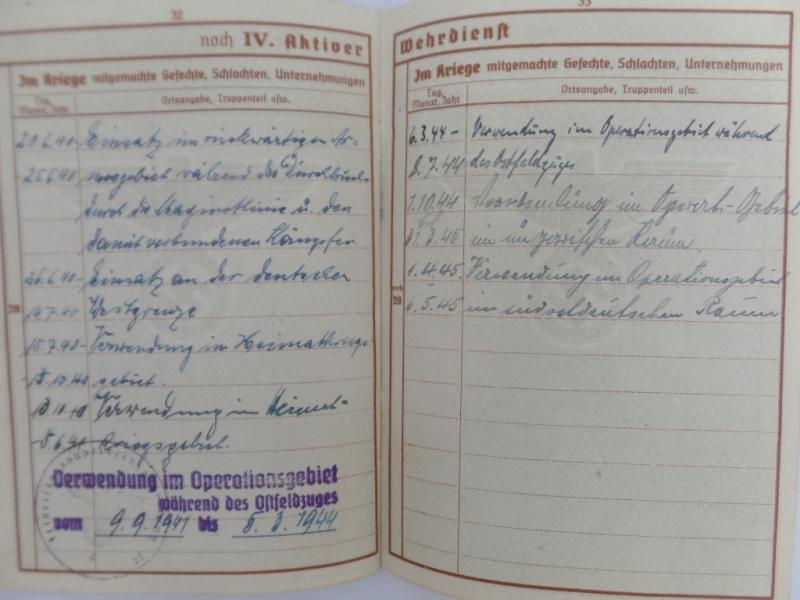 32
noch IV. Aktiver
Im Kriege mitgemachte Gefechte, Schlachten, Unternehmungen
Tag, Monat, Jahr
Ortsangabe, Truppenteil usw.
20.6.40- Einsatz im rückwärtigen Ar-
25.6.40 während des Durchbruchs
durch die Maginotlinie u. den
damit verbundenen Kämpfen
26.6.40- Einsatz an der deutschen
14.7.40 Westgrenze
15.7.40- Verwendung im Heimatkriegs-
-13.10.40 gebiet.
Verwendung im Heimat-
-5.6.41 kriegsgebiet.
28
Verwendung im Operationsgebiet
während des Ostfeldzuges
vom 9.9.1941 bis 5.3.1944
33
Wehrdienst
Im Kriege mitgemachte Gefechte, Schlachten, Unternehmungen
Tag, Monat, Jahr
Ortsangabe, Truppenteil usw.
6.3.44- Verwendung im Operationsgebiet während
8.7.44 des Ostfeldzuges
1.10.44 im Operat.-Gebiet
31.3.45 im Raum.
1.4.45. Verwendung im Operationsgebiet
6.5.45 im südostdeutschen Raum
noch
28